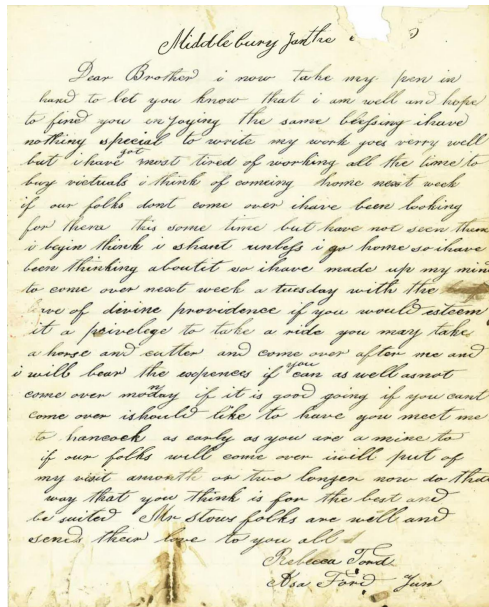 Middlebury Jan the
Dear Brother i now take my pen in
hand to let you know that i am well and hope
to find you injoying the same blessing ihave
nothing special to write my work goes verry well
but i have got most tired of working all the time to
buy victuals i think of comeing home next week
if our folks dont come over ihave been looking
for them this some time but have not seen them
i begin think i shant unless i go home so ihave
been thinking aboutit so ihave made up my min
to come over next week a tuesday with the
leave of devine providence if you would esteem
it a privelege to take a ride you may take
a horse and cutter and come over after me and
i will bear the expences if you can as well asnot
come over monday if it is good going if you cant
come over ishould like to have you meet me
to hancock as early as you are a mine to
if our folks will come over iwill put of
my visit amonth or two longer now do that
way that you think is for the best and
be suited Mr Stows folks are well and
send their love to you all
Rebecca Ford
Asa Ford Jun